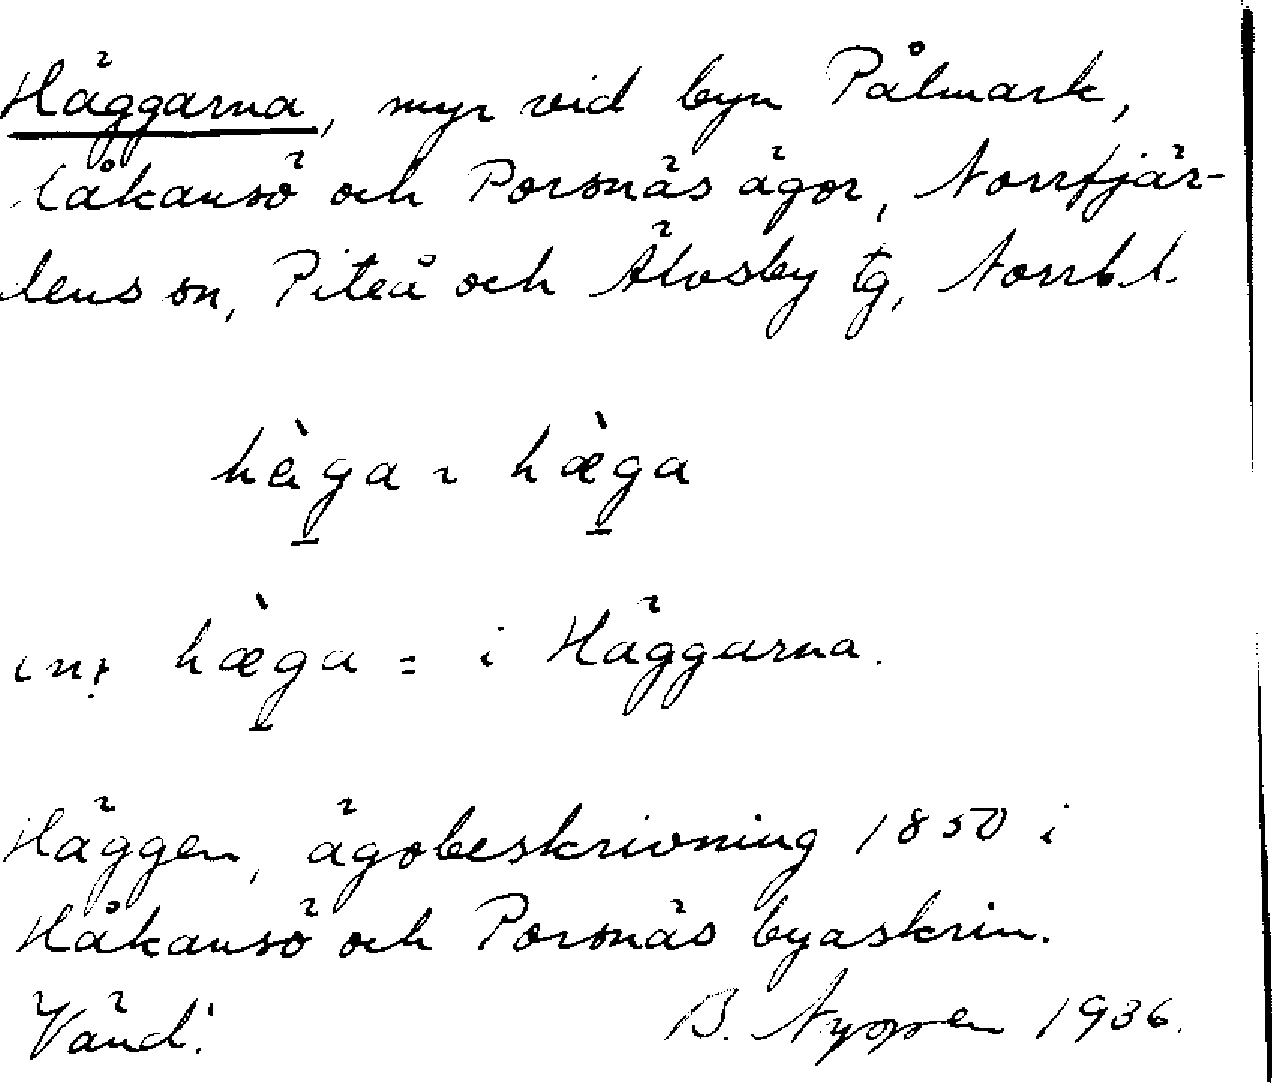 Häggarna, myr vid byn Pålmark,
Håkansö och Porsnäs ägor, Norrfjär-
dens sn, Piteå och Älvsby tg, Norrb. l.
hèga ~ hæ̀ga
hæ̀ga = i Häggarna.
Häggen, ägobeskrivning 1850 i
Håkansö och Porsnäs byaskrin.
Vänd! B. Nygren 1936.